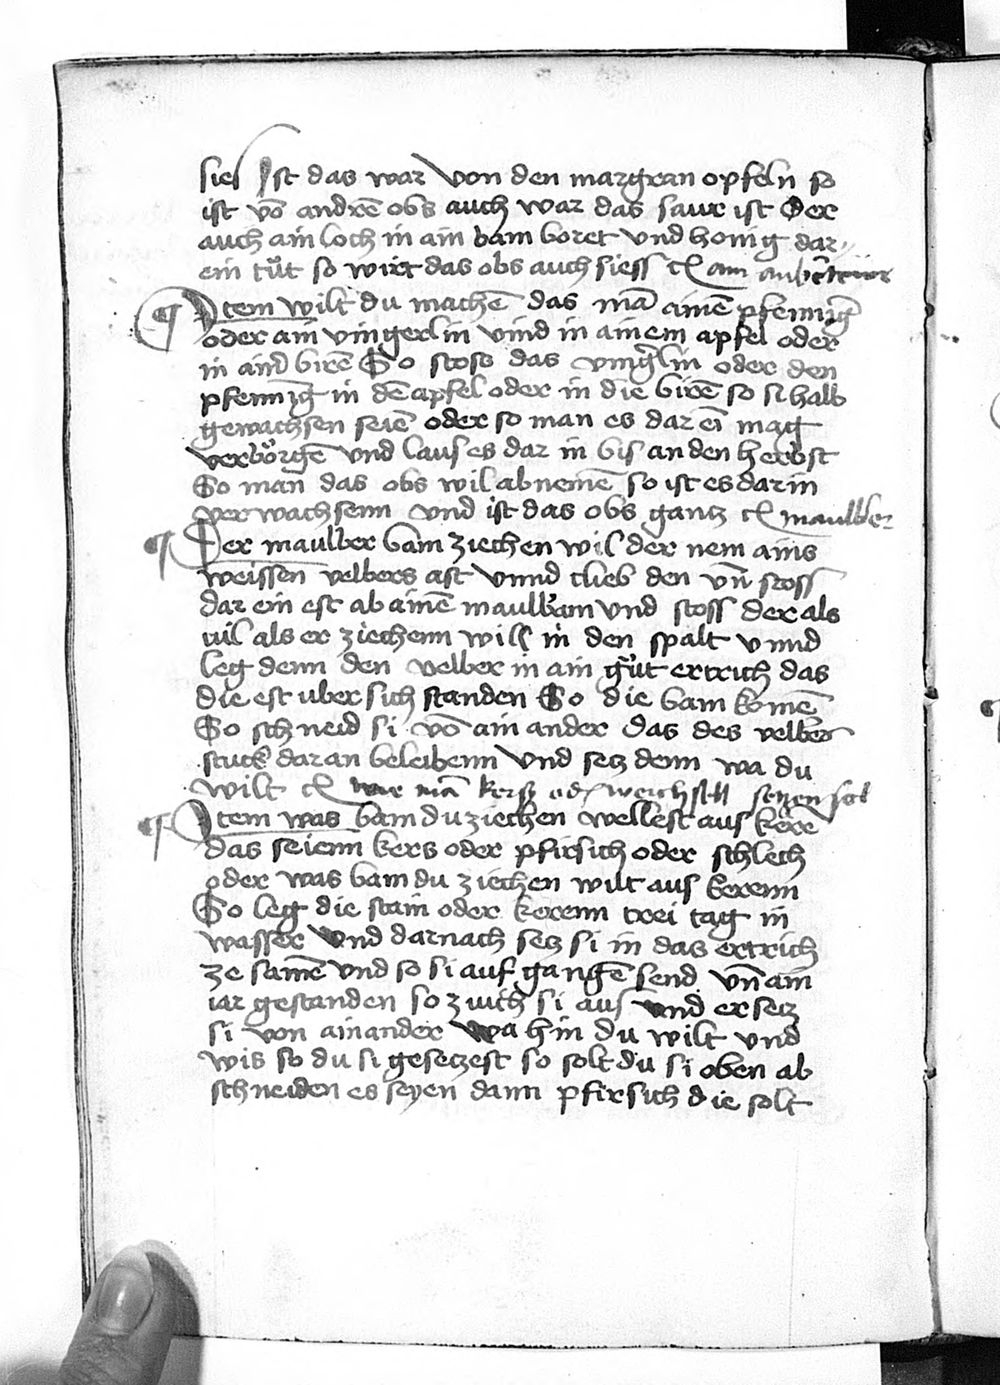 sies Ist das war Von den margran opfeln so
ist vō andrē obs auch war das saur ist Der
auch ain loch in ain bam boret Vnd honig dar
ein tůt so wirt das obs auch siess
¶ Item wilt du machē das mā ainē pfennig
oder ain vingerlin vind in ainem apfel oder
in ainr birē So stoss das vingerlin oder den
pfennig in dē apfel oder in die birē so si halb
gewachsen seiē oder so man es dar ein mag
verborgē Vnd laus es dar in bis an den herbst
So man das obs wil abnemē so ist es dar in
verwachsenn vnd ist das obs gantz maulber
¶ Der maulber bam ziechen wil der nem ains
weissen velbers ast Vnnd clieb den vn̄ stoss
dar ein est ab ainē maulbam vnd stoss der als
uil als er ziechenn will in den spalt vnnd
leg denn den velber in ain gůt ertrich das
die est uber sich standen So die bam komē
So schneid si vō ain ander das des velbers
stuck dar an beleibenn Vnd setz denn wa du
wilt wie mā kersz oder weichsell setzen sol
¶ Item was bam du ziechen wellest aus kerē
das seienn kers oder pfirsich oder schlech
oder was bam du ziechen wilt aus kerenn
So leg die stain oder kerenn trei tag in
wasser Vnd darnach setz si in das ertrich
ze samē Vnd so si auf gangē send vn̄ ain
iar gestanden so zuich si aus vnd er setz
si von ainander Wa hin du wilt vnd
wis so du si gesetzest so solt du si oben ab
schneiden es seyen dann pfirsich die solt